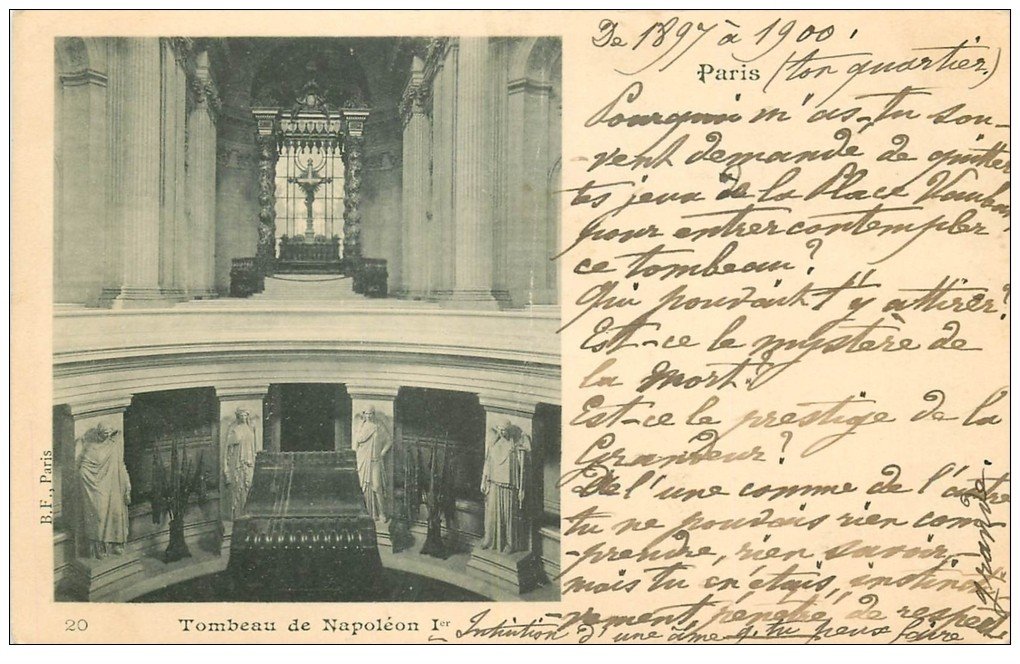 De 1897 à 1900.
Paris (ton quartier.)
Pourquoi m'as-tu sou-
-vent demandé, de quitter
tes jeux de la Place Vauban
pour entrer contempler
ce tombeau?
Qui pouvait t'y attirer?
Est-ce le mystère de
la mort?
Est-ce le prestige de la
Grandeur?
De l'une comme de l'autre
tu ne pouvais rien com-
-prendre, rien savoir,
mais tu en étais, instincti-
-vement, pénétré de respect.
Intuition d'une âme q. tu peux faire
grande.
B.F., Paris
20 Tombeau de Napoléon Ier